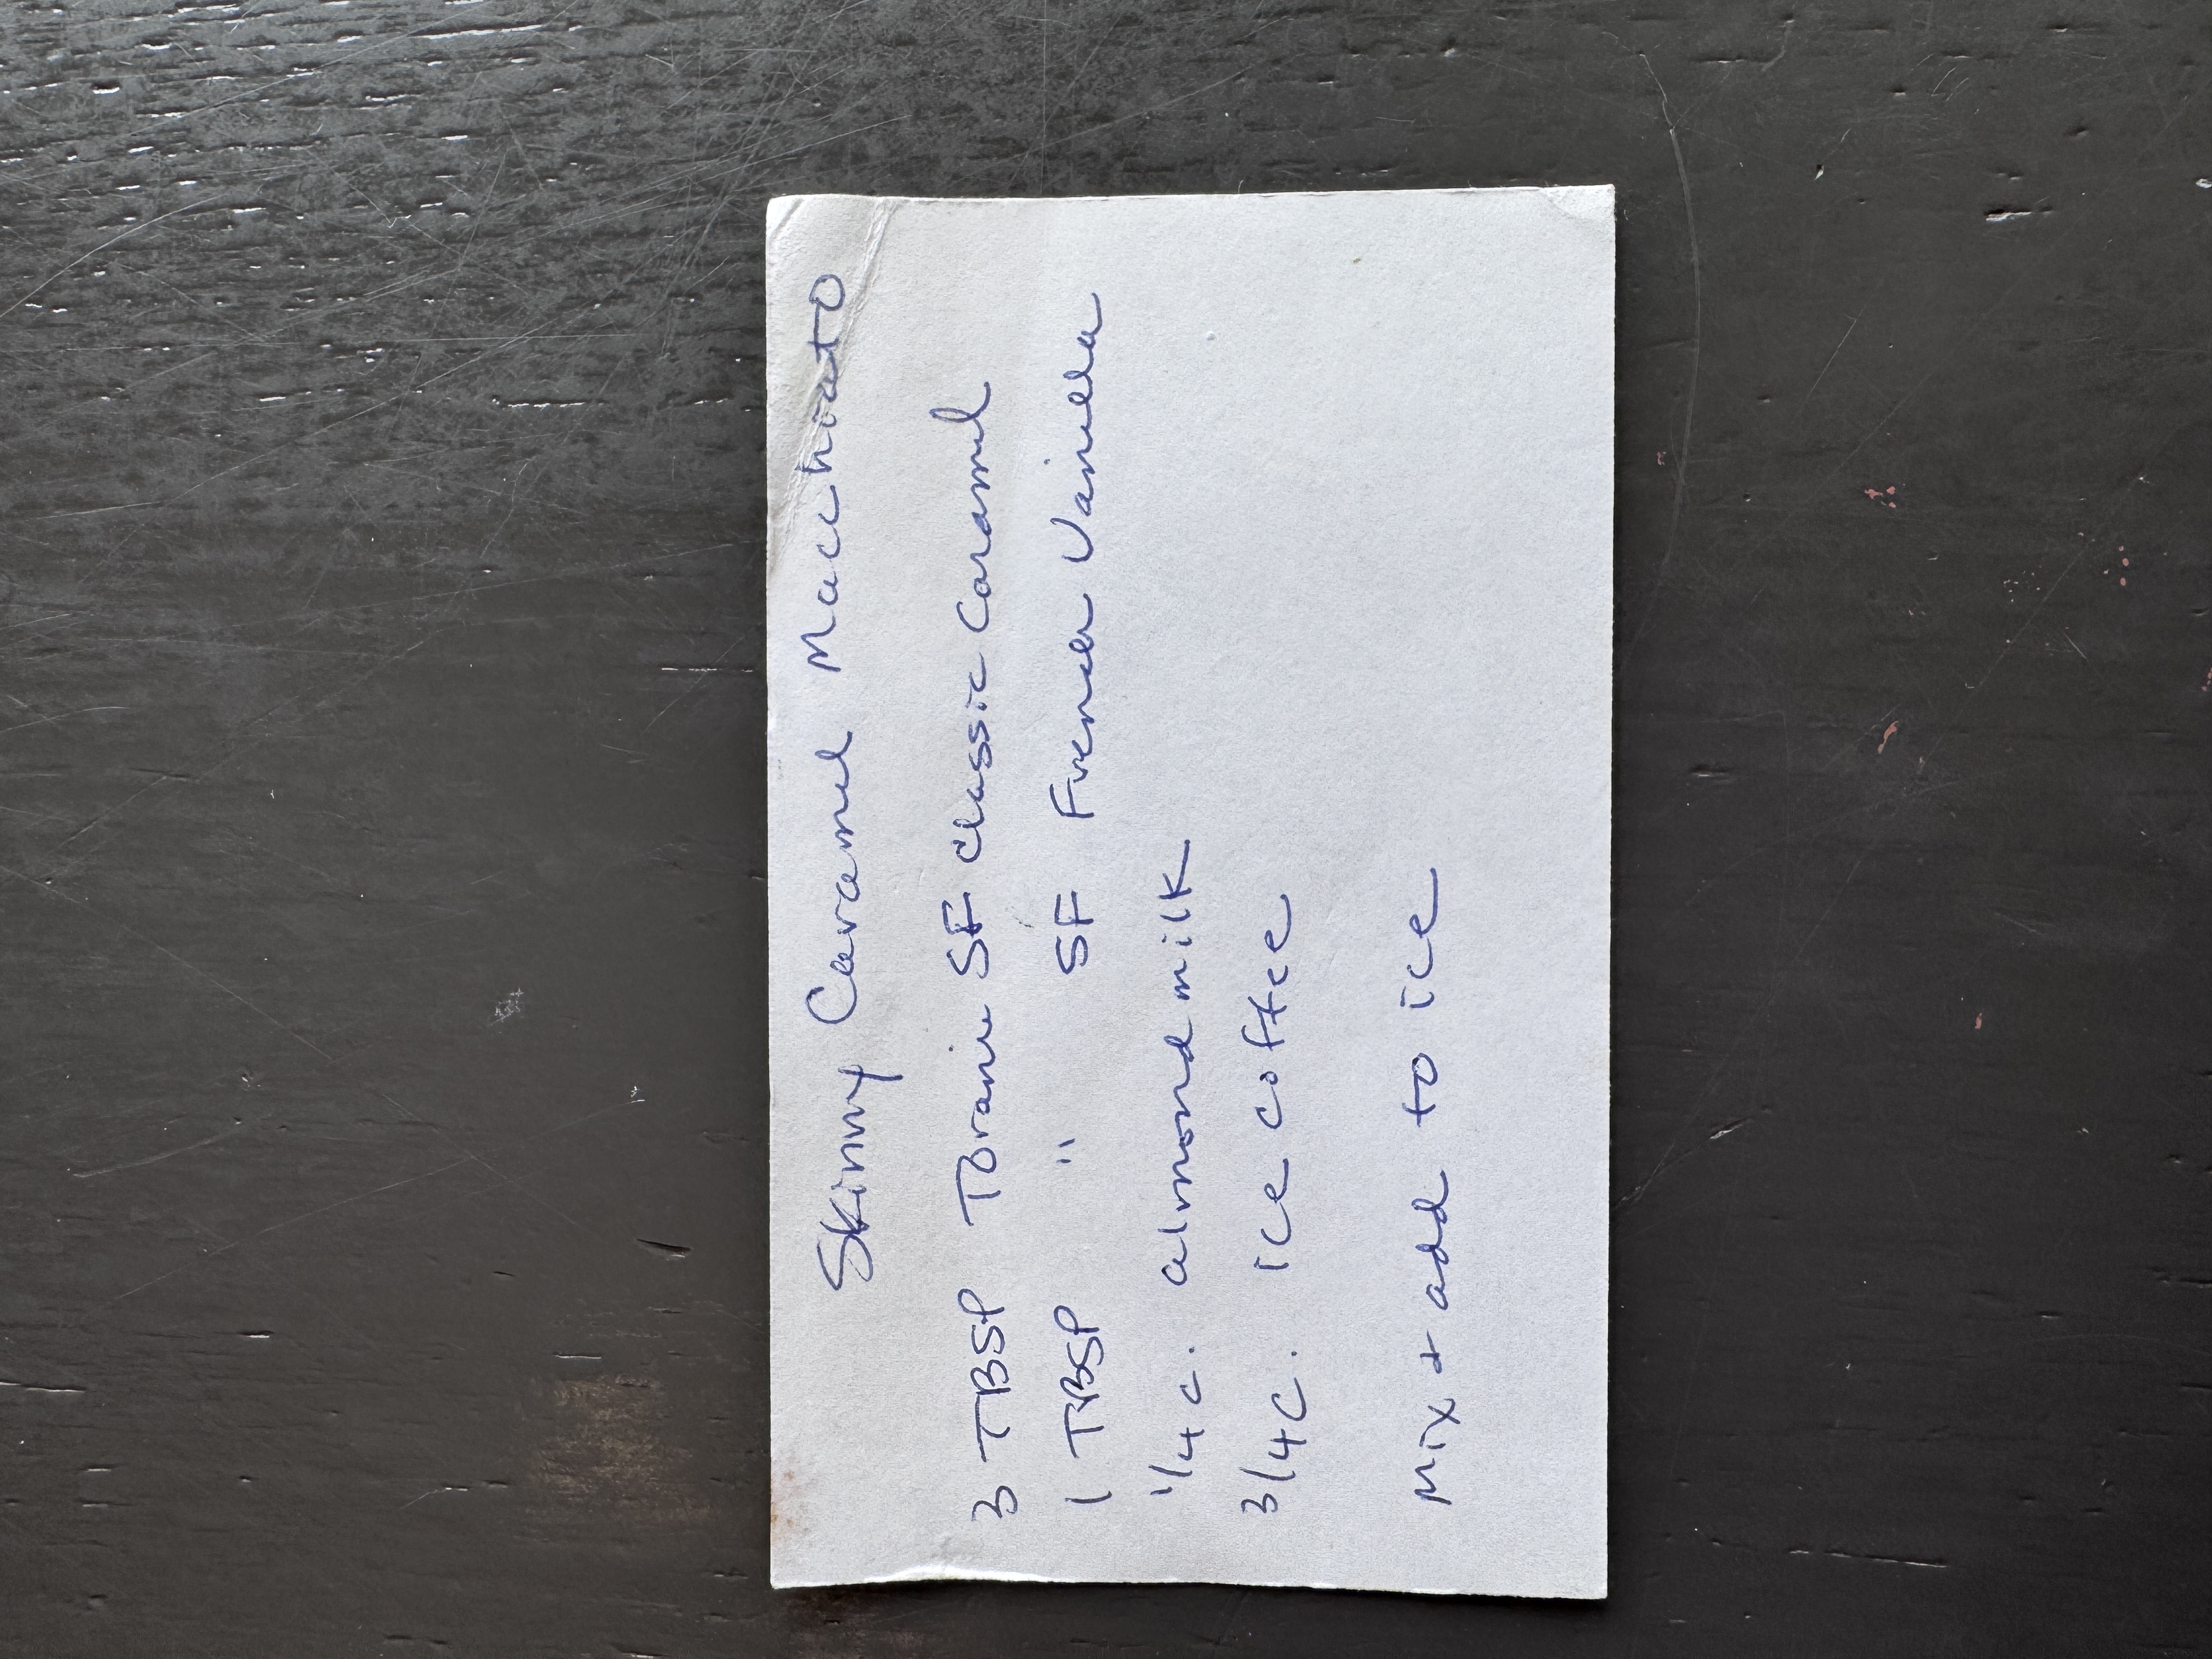 Skinny Caramel Macchiato
3 TBSP Toranie SF classic Caramel
1 TBSP " SF French Vanilla
1/4 c. almond milk
3/4 c. ice coffee
Mix + add to ice